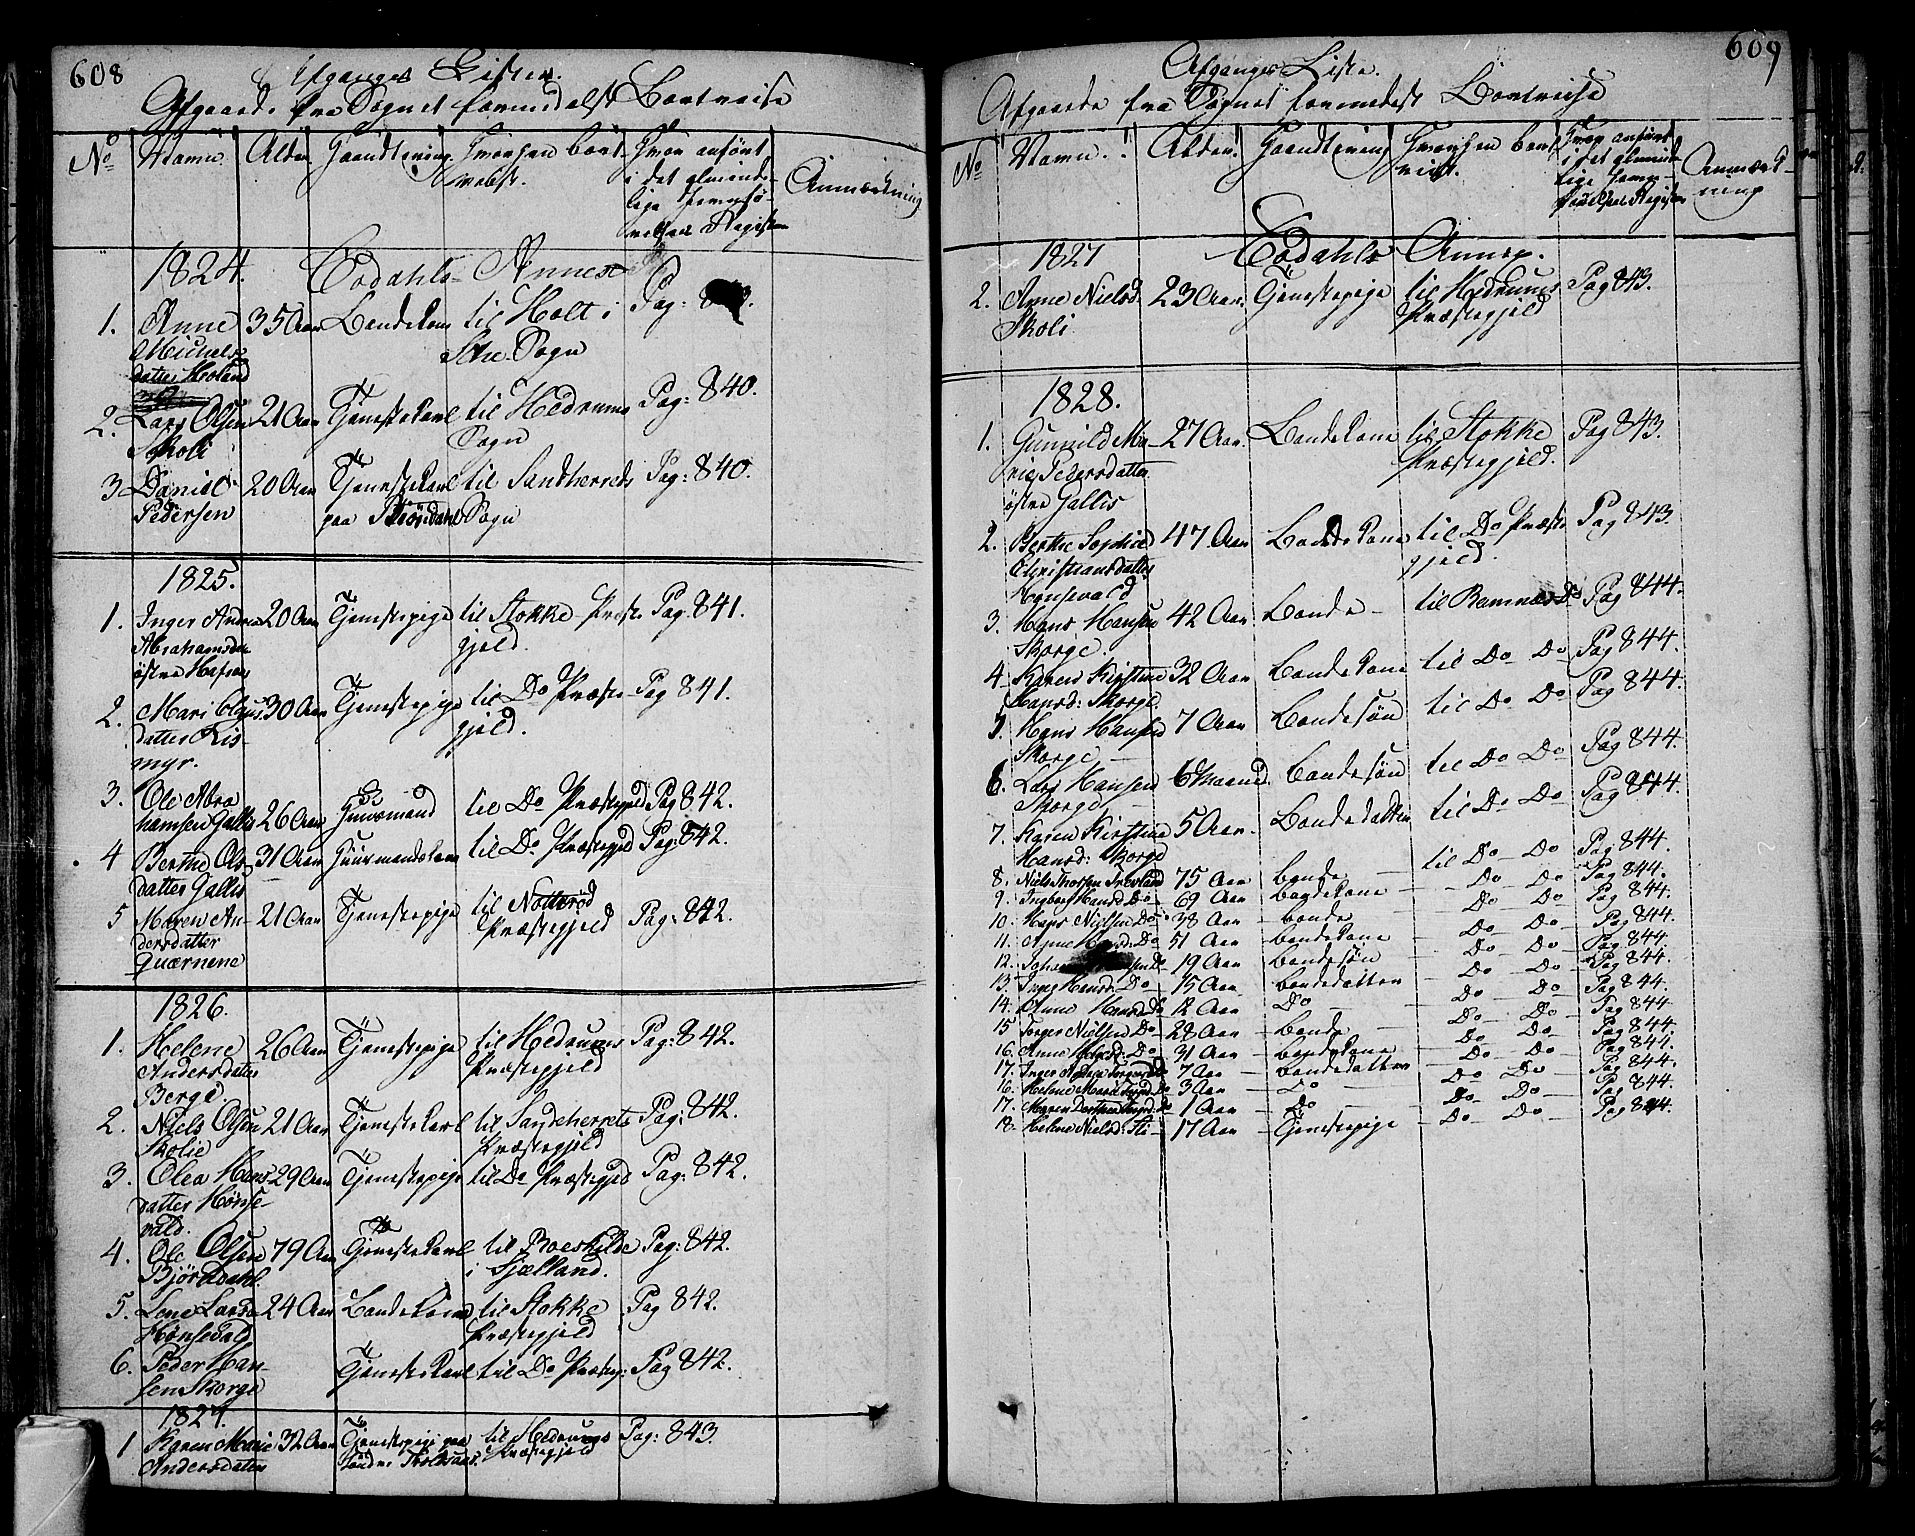 608
Afgangs Liste
Afgaaede fra Sognet formedelst Bortreise
No Navn. Alder Haandtering. Hvorhen bort- Hvor anført Anmærkning
reist. i det alminde-
lige Jevnfø-
relses Register
1824. Eodahls Annex
1. Anne 35 Aar Bondekone til Holt i Pag:
Michels- Sogn
datter
2. Lars Olsen 21 Aar Tjenestekarl til Hedrums Pag: 840.
Skoli Sogn
3 Daniel 20 Aar Tjenestekarl til Sandherreds Pag: 840.
Pedersen paa Sogn
1825.
1. Inger Andrea 20 Aar Tjenestepige til Stokke Præste- Pag: 841.
Abrahamsdr gjeld.
østre
2. Mari Olaus 30 Aar Tjenestepige til Do Præste- Pag 841.
datter Ris- gjeld.
myr.
3. Ole Abra
hamsen Gallis 26 Aar Huusmand til Do Præstegjeld Pag 842.
4 Berthe Ols- 31 Aar Huusmandskone til Do Præstegjeld Pag: 842.
datter Gallis
5 Maren An- 21 Aar Tjenestepige til Nøtterød Pag: 842.
dersdatter Præstegjeld
Quærnene
1826.
1. Helene 26 Aar Tjenestepige til Hedrums Pag: 842.
Andersdatter Præstegjeld
Berge
2. Niels Olsen 21 Aar Tjenestekarl til Sandeherrets Pag: 842.
Skolie Præstegjeld
3. Olea Hans 29 Aar Tjenestepige til Do Præstegjeld Pag: 842.
datter Hønse-
vald.
4. Ole Olsen 79 Aar Tjenestekarl til Roeskilde Pag: 842.
Bjørndahl. i Sjælland.
5. Lene Larsdr 24 Aar Bondekone til Stokke Pag 842.
Hønsevald Præstegjeld
6. Peder Han- Tjenestekarl til Do Præsteg: Pag 842.
sen Skorge
1827.
1 Karen Marie 32 Aar Tjenestepige paa til Hedrums Pag: 843.
Andersdatter søndre Præstegjeld
609
Afgangs Liste.
Afgaaede fra Sognet formedelst Bortreise
No Navn. Alder. Haandtering Hvorhen bort- Hvor anført Anmærk-
reist. i det alminde- ning
lige Jevn-
førelses Register
1827 Eodahls Annex.
2. Anne Nielsd. 23 Aar. Tjenestepige til Hedrums Pag 843.
Skoli Præstegjeld
1828.
1. Gunnild Ma- 27 Aar. Bondekone til Stokke Pag 843.
rie Pedersdatter Præstegjeld.
østre Gallis
2. Berthe Sophie 47 Aar Bondekone til Do Præste- Pag 843.
Christiansdatter gjeld.
Hønsevald
3. Hans Hansen 42 Aar Bonde - til Ramnes Do Pag 844.
Skorge.
4. Karen Kirstine 32 Aar Bondekone til Do Do Pag 844.
Hansd: Skorge.
5. Hans Hansen 7 Aar Bondesøn til Do Do Pag 844.
Skorge
6. Lars Hansen 6 Maaned. Bondesøn til Do Do Pag 844.
Skorge
7. Karen Kirstine 5 Aar. Bondedatter til Do Do Pag 844.
Hansd: Skorge
8. Niels Thorsen 75 Aar bonde til Do Do Pag 844.
9. Ingebor Hansd Do 69 Aar bondekone Do Do Pag 844.
10. Hans Nielsen Do 38 Aar bonde Do Do Pag 844.
11. Anne Hansd: Do 51 Aar bondekone Do Do Pag 844.
12. Do 19 Aar bondesøn Do Do Pag 844.
13. Inger Hansd: Do 15 Aar bondedatter Do Do Pag 844.
14. Anne Hansd Do 12 Aar Do Do Do Pag 844.
15 Torger Nielsen Do 28 Aar bonde Do Do Pag 844.
16. Anne Do 31 Aar bondekone Do Do Pag 844.
17. Inger Do 7 Aar bondedatter Do Do Pag 844.
16. Helene Marie Do 3 Aar Do Do Do Pag 844.
17. Maren Do 1 Aar Do Do Do Pag 844.
18. Helene Nielsd: 17 Aar Tjenestepige Do Do Pag 844.